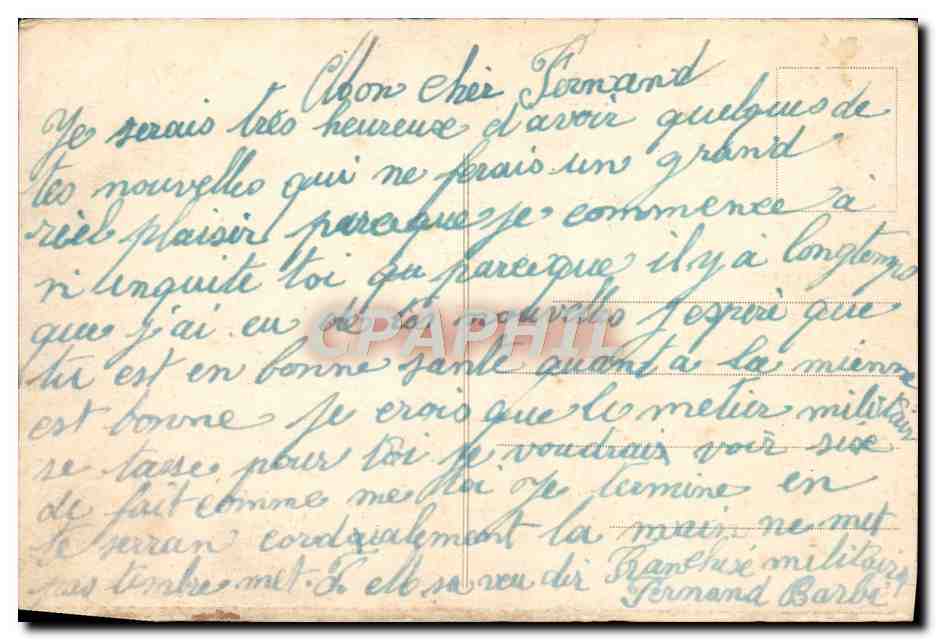 Mon cher Fernand
Je serais très heureuse d'avoir quelques de
tes nouvelles qui me ferais un grand
réel plaisir parceque je commence à
m inquite toi ou parceque il y à longtemps
que j'ai eu de tes nouvelles J'espère que
tu est en bonne santé quant à la mienne
est bonne je crois que le metier militaire
se tasse pour toi je voudrais voir si
de fait comme me toi Je termine en
te serran cordialement la main ne met
pas timbre met F. M. sa veu dir Franchise militaire
Fernand Barbe
CPAPHIL